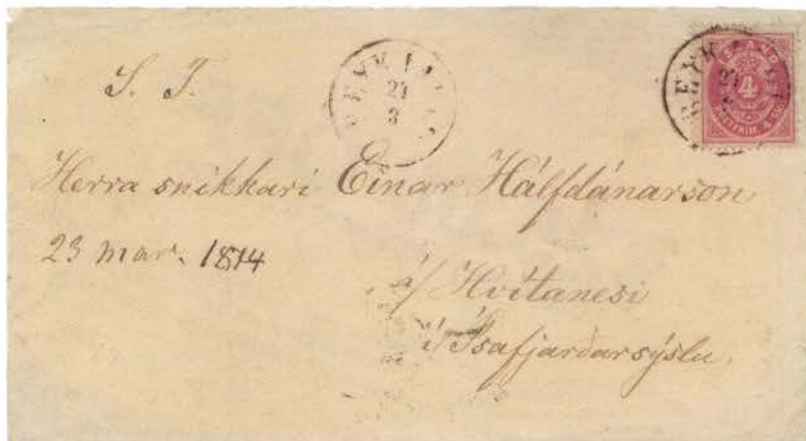 S. T.
REYKJAVIK
23
3
4
Herra snikkari Einar Hálfdánarson
23 mar. 1874
á/ Hvítanesi
í Ísafjardarsýslu.